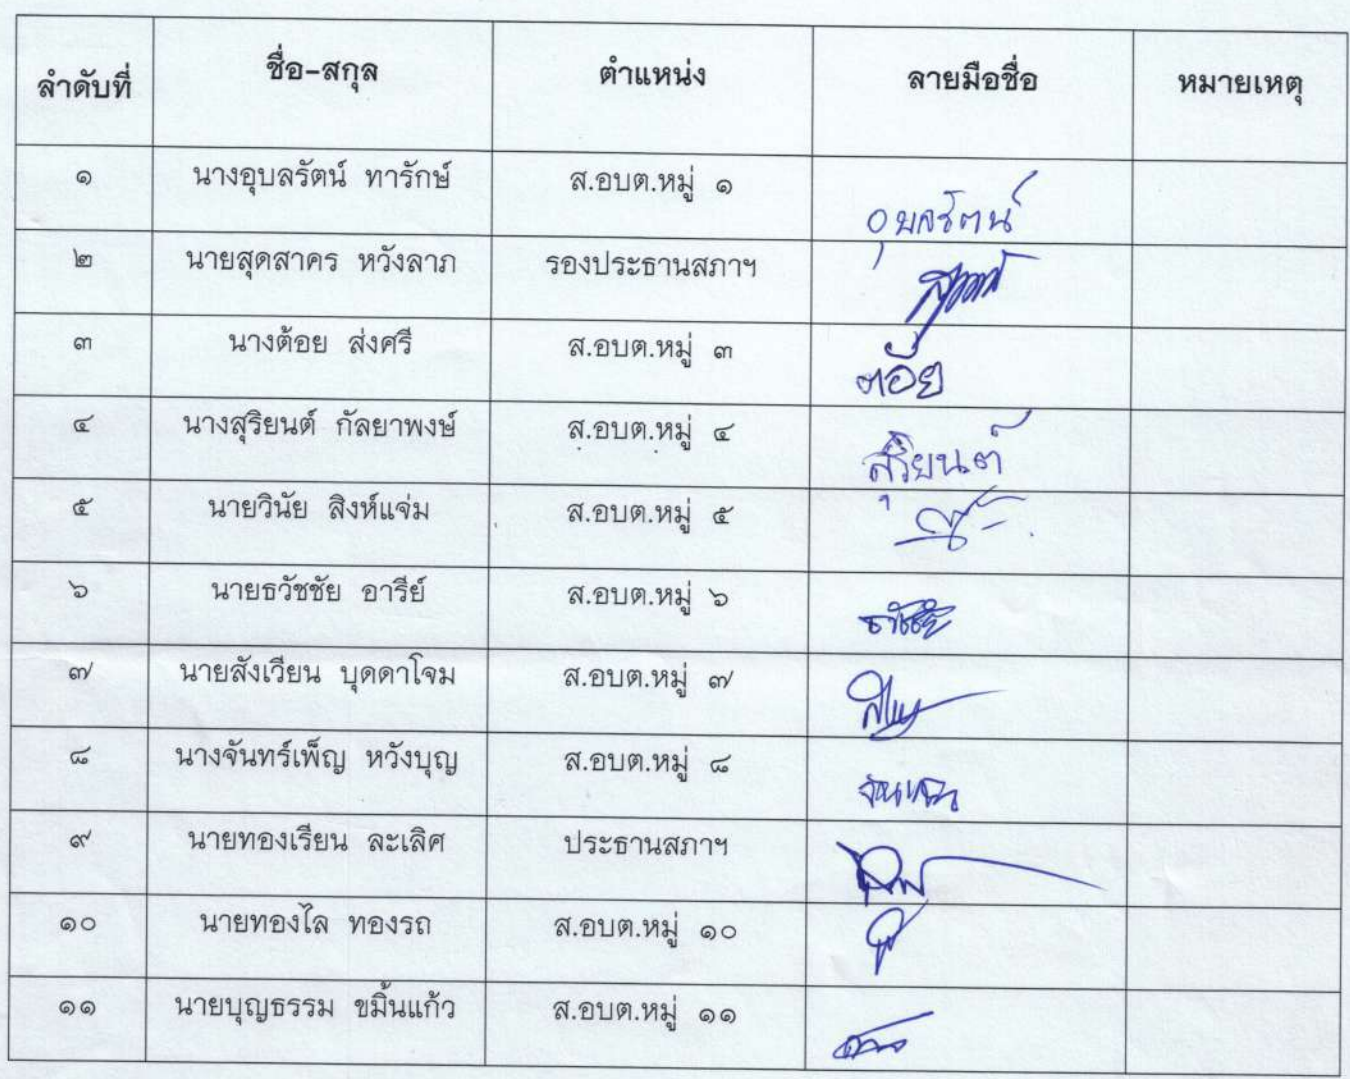 ลำดับที่ ชื่อ-สกุล ตำแหน่ง ลายมือชื่อ หมายเหตุ
๑ นางอุบลรัตน์ ทารักษ์ ส.อบต.หมู่ ๑ อุบลรัตน์
๒ นายสุดสาคร หวังลาภ รองประธานสภาฯ
๓ นางต้อย ส่งศรี ส.อบต.หมู่ ๓ ต้อย
๔ นางสุริยนต์ กัลยาพงษ์ ส.อบต.หมู่ ๔ สุริยนต์
๕ นายวินัย สิงห์แจ่ม ส.อบต.หมู่ ๕
๖ นายธวัชชัย อารีย์ ส.อบต.หมู่ ๖ ธวัชชัย
๗ นายสังเวียน บุดดาโจม ส.อบต.หมู่ ๗
๘ นางจันทร์เพ็ญ หวังบุญ ส.อบต.หมู่ ๘
๙ นายทองเรียน ละเลิศ ประธานสภาฯ
๑๐ นายทองไล ทองรถ ส.อบต.หมู่ ๑๐
๑๑ นายบุญธรรม ขมิ้นแก้ว ส.อบต.หมู่ ๑๑